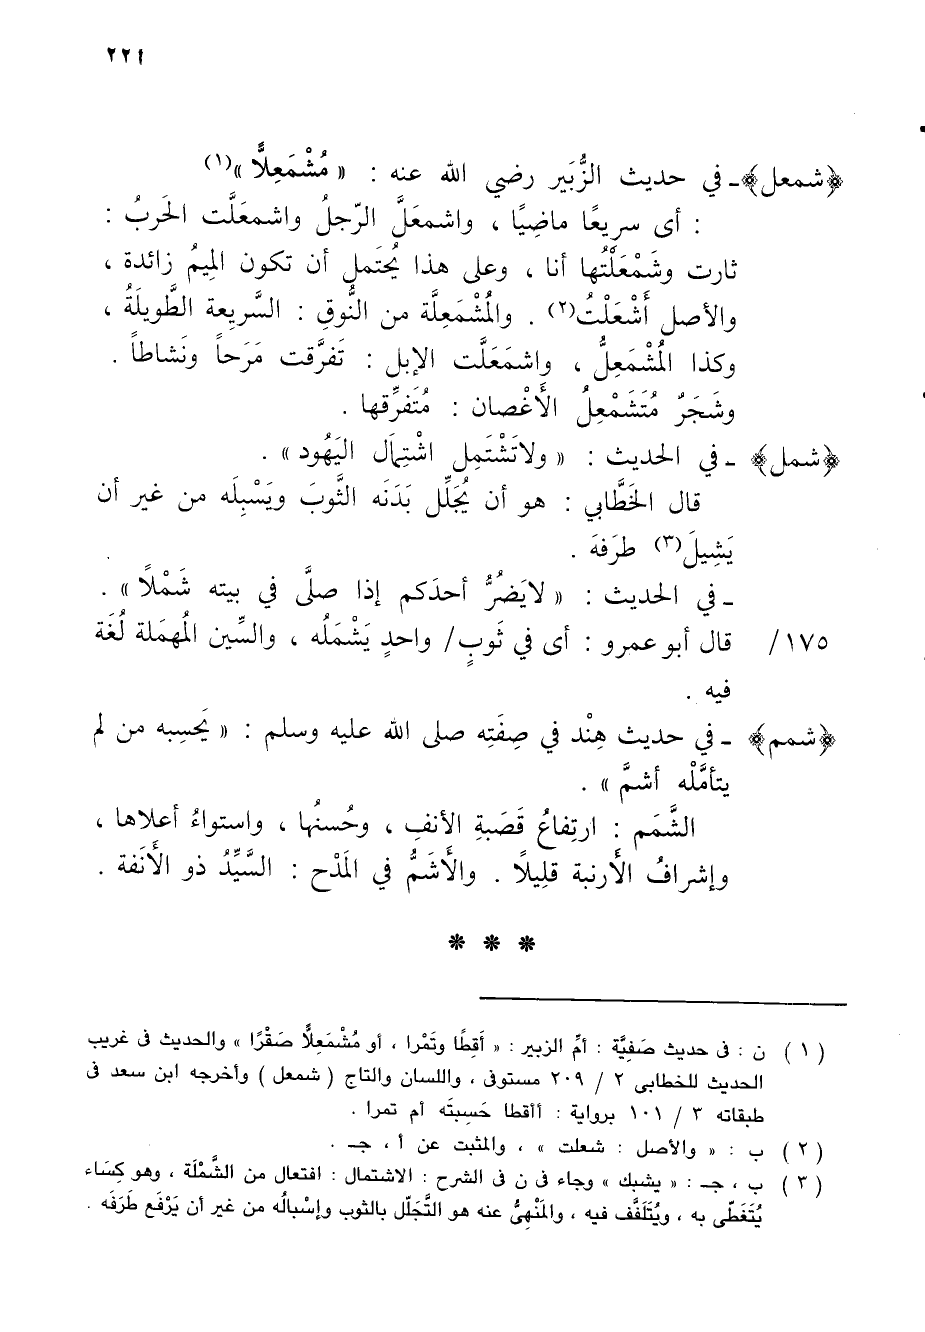 ٢٢١
﴿شمعل﴾ـ في حديث الزُّبَير رضي الله عنه : « مُشْمَعِلًّا »(١)
: أى سريعًا ماضِيًا ، واشمعَلَّ الرّجلُ واشمعَلَّت الحَربُ :
ثارت وشَمْعَلْتُها أنا ، وعلى هذا يُحتَمل أن تكون المِيمُ زائدة ،
والأصل أَشْعَلْتُ(٢) . والمُشْمَعِلَّة من النُّوقِ : السَّريعة الطَّويلَةُ ،
وكذا المُشْمَعِلُّ ، واشمَعَلَّت الإبل : تَفرَّقت مَرَحاً ونَشاطاً .
وشَجَرٌ مُتَشَمْعِلُ الأَغْصان : مُتَفرِّقها .
﴿شمل﴾ ـ في الحديث : « ولاتَشْتَمِل اشْتِمَال اليَهُود » .
قال الخَطَّابي : هو أن يُجَلِّل بَدَنَه الثَّوبَ ويَسْبِلَه من غير أن
يَشِيلَ(٣) طرَفهَ .
ـ في الحديث : « لايَضُرُّ أحدَكم إذا صلَّى في بيته شَمْلاً » .
١٧٥/ قال أبو عمرو : أى في ثَوبٍ/ واحدٍ يَشْمَلُه ، والسِّين المُهمَلة لُغَة
فيه .
﴿شمم﴾ ـ في حديث هِنْد في صِفَتِه صلى الله عليه وسلم : « يَحسِبه من لم
يتأمَّلْه أشمَّ » .
الشَّمَم : ارتِفاعُ قَصَبةِ الأنفِ ، وحُسنُها ، واستواءُ أعلاها ،
وإشرافُ الأَرنبة قلِيلًا . والأَشمُّ في المَدْح : السَّيِّدُ ذو الأَنَفة .
* * *
( ١ ) ن : فى حديث صَفِيَّة : أمِّ الزبير : « أَقِطًا وتَمْرا ، أو مُشْمَعِلًّا صَقْرًا » والحديث فى غريب
الحديث للخطابى ٢ / ٢٠٩ مستوفى ، واللسان والتاج ( شمعل ) وأخرجه ابن سعد فى
طبقاته ٣ / ١٠١ برواية : أأقطا حَسِبتَه أم تمرا .
( ٢ ) ب : « والأصل : شعلت » ، والمثبت عن أ ، جـ .
( ٣ ) ب ، جـ : « يشبك » وجاء فى ن فى الشرح : الاشتمال : افتعال من الشَّمْلَة ، وهو كِسَاء
يُتَغَطَّى به ، ويُتَلَفَّف فيه ، والمَنْهِىُّ عنه هو التَّجَلّل بالثوب وإسْبالُه من غير أن يَرْفَع طَرَفَه .